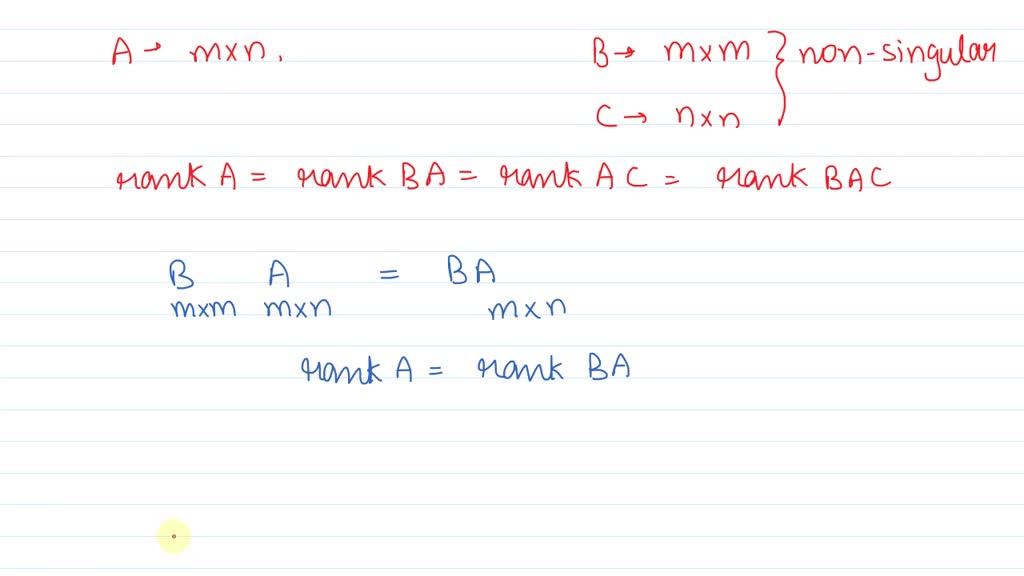 A → m×n.
B → m×m } non-singular
C → n×n
rank A = rank BA = rank AC = rank BAC
B A = BA
m×m m×n m×n
rank A = rank BA